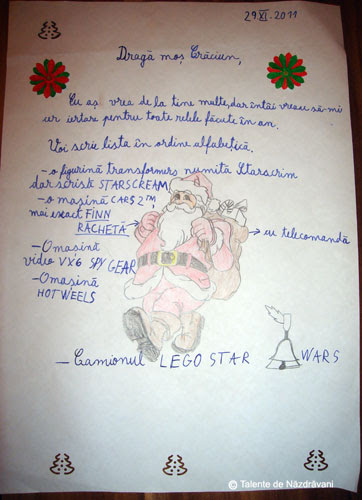 29 XI. 2011
Dragă moș Crăciun,
Eu aș vrea de la tine multe, dar întâi vreau să-mi
cer iertare pentru toate relele făcute în an.
Voi scrie lista în ordine alfabetică.
- o figurină transformers numită Starscrim
dar scrisă STARSCREAM
- o mașină CARS 2™,
mai exact FINN
RACHETĂ
cu telecomandă
- O mașină
video VX6 SPY GEAR
- O mașină
HOT WEELS
- Camionul LEGO STAR WARS
© Talente de Năzdrăvani